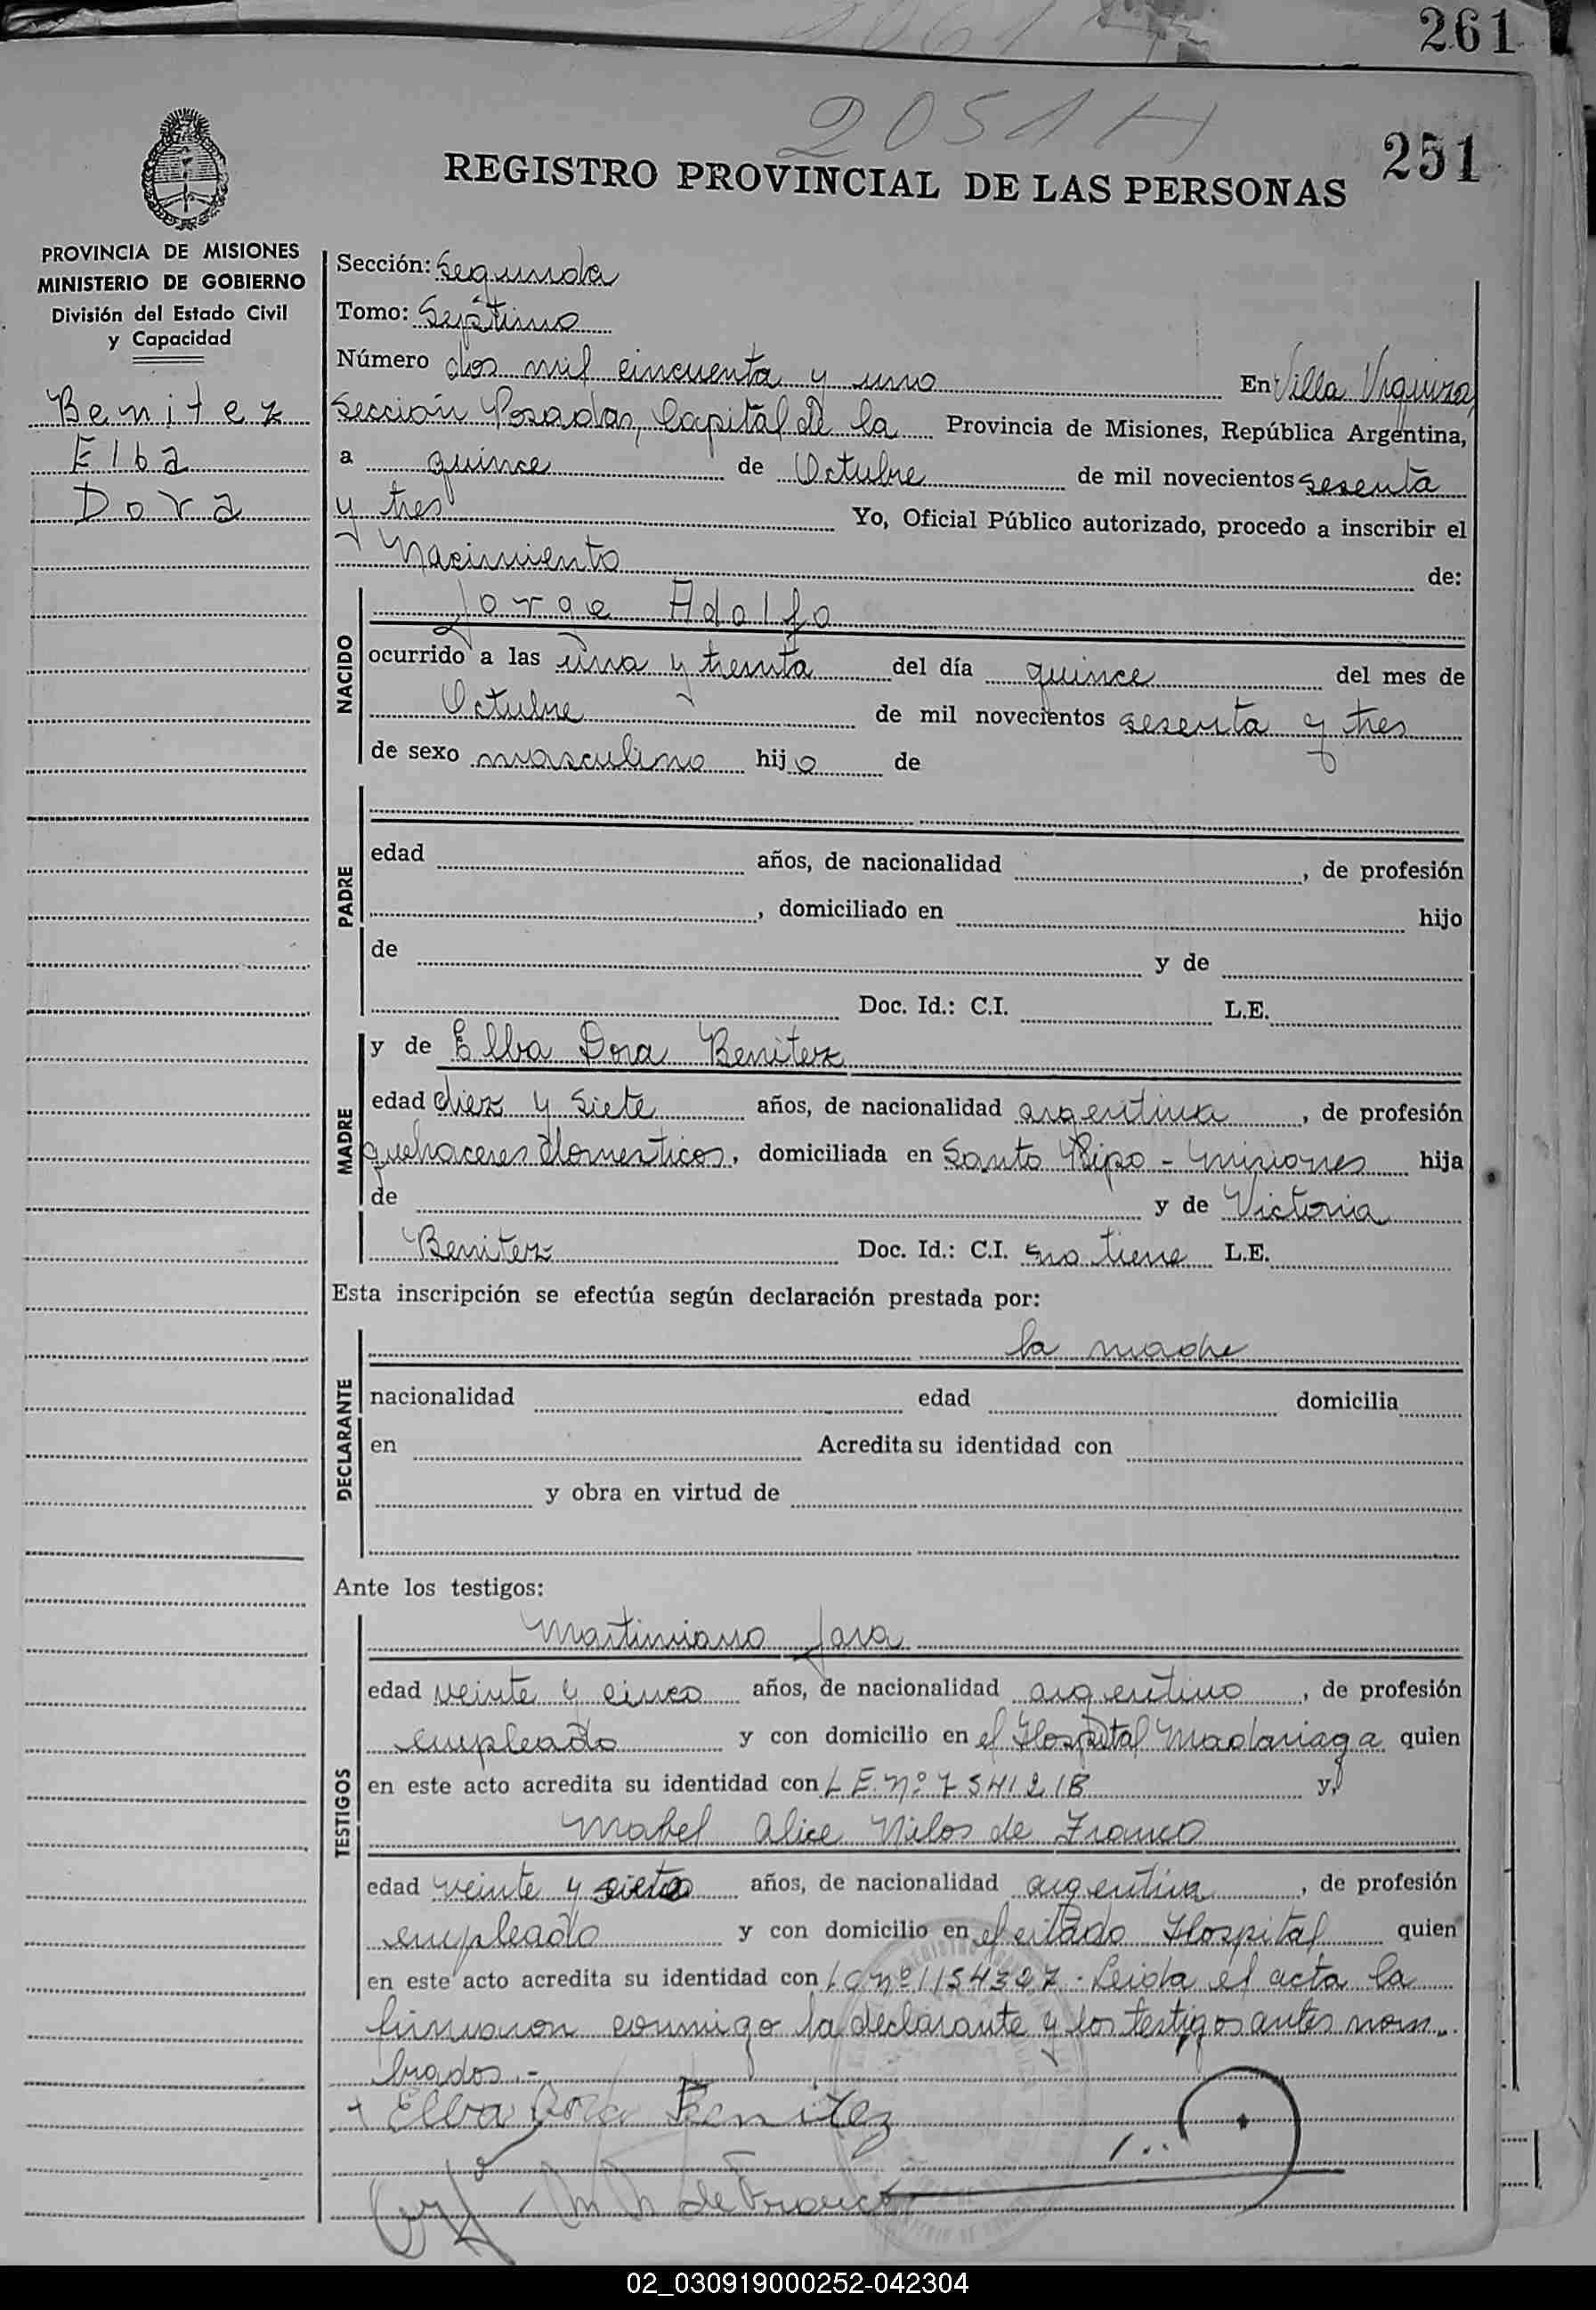 261
2051 H
251
REGISTRO PROVINCIAL DE LAS PERSONAS
PROVINCIA DE MISIONES
MINISTERIO DE GOBIERNO
División del Estado Civil
y Capacidad
Benitez
Elba
Dora
Sección: Segunda
Tomo: Séptimo
Número dos mil cincuenta y uno En Villa Urquiza,
Sección Posadas, Capital de la Provincia de Misiones, República Argentina,
a quince de Octubre de mil novecientos sesenta
y tres Yo, Oficial Público autorizado, procedo a inscribir el
Nacimiento de:
NACIDO
Jorge Adolfo
ocurrido a las una y treinta del día quince del mes de
Octubre de mil novecientos sesenta y tres
de sexo masculino hijo de
PADRE
edad años, de nacionalidad , de profesión
, domiciliado en hijo
de y de
Doc. Id.: C.I. L.E.
MADRE
y de Elba Dora Benitez
edad diez y siete años, de nacionalidad argentina, de profesión
quehaceres domesticos, domiciliada en Santo Pipo - Misiones hija
de y de Victoria
Benitez Doc. Id.: C.I. no tiene L.E.
Esta inscripción se efectúa según declaración prestada por:
DECLARANTE
la madre
nacionalidad edad domicilia
en Acredita su identidad con
y obra en virtud de
Ante los testigos:
TESTIGOS
Martiniano Jara
edad veinte y cinco años, de nacionalidad argentino, de profesión
empleado y con domicilio en el Hospital Madariaga quien
en este acto acredita su identidad con L E. nº y
Mabel Alice de Franco
edad veinte y siete años, de nacionalidad argentina, de profesión
empleado y con domicilio en el citado Hospital quien
en este acto acredita su identidad con L C nº 1154327 - Leida el acta la
firmaron conmigo la declarante y los testigos antes nom-
brados.-
+ Elba Dora Benitez
de Franco
02_030919000252-042304